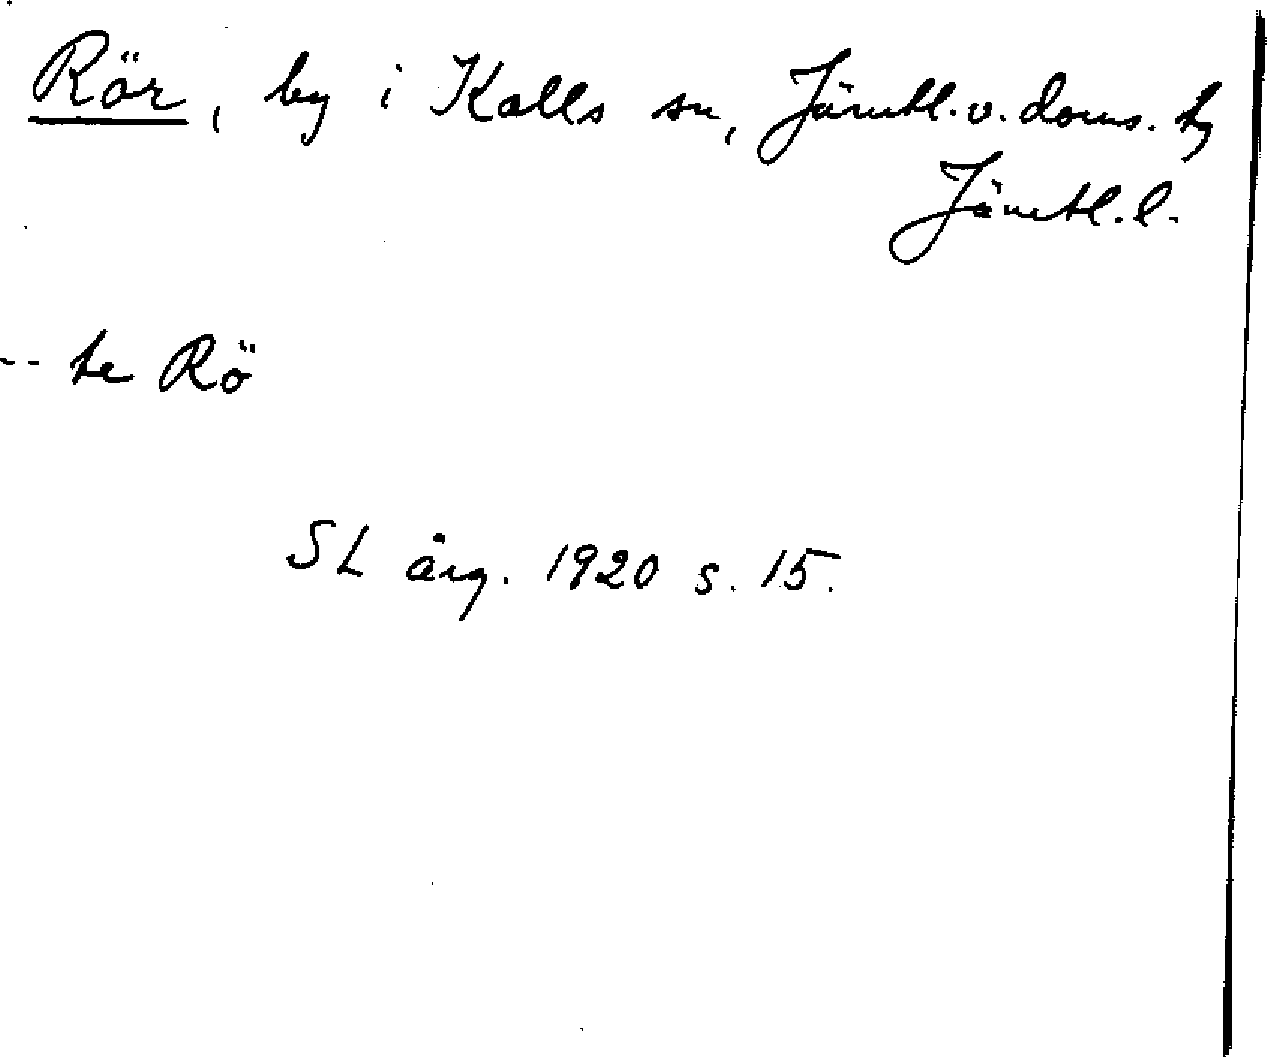 Rör, by i Kalls sn, Jämtl. v. doms. tg
Jämtl. l.
-- te Rö
SL årg. 1920 s. 15.